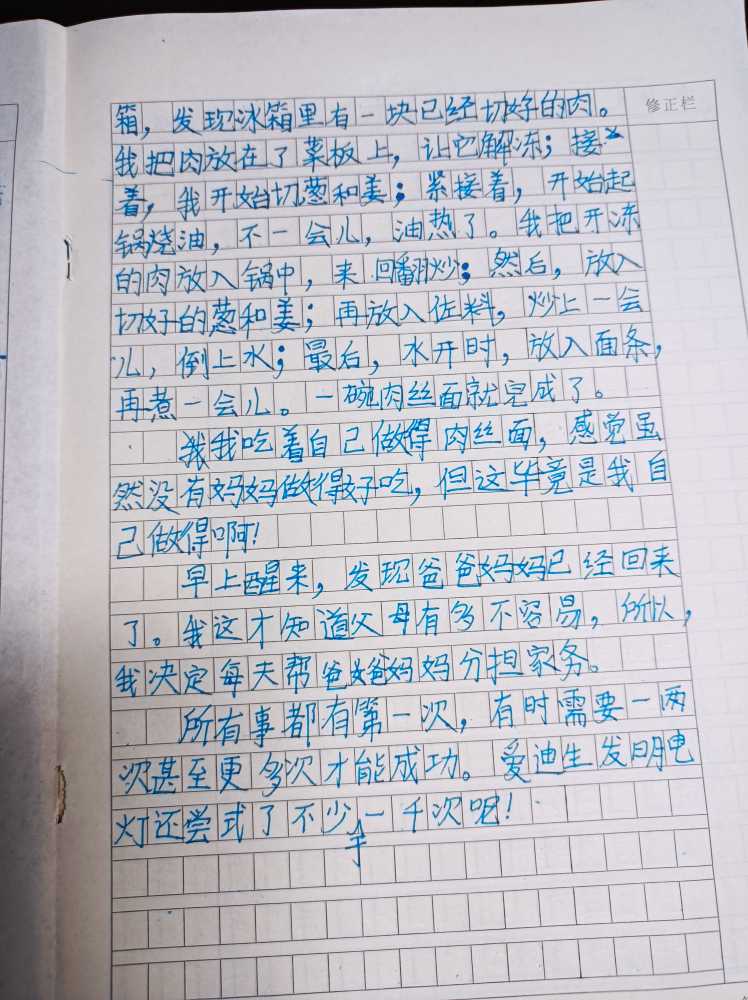 修正栏
箱，发现冰箱里有一块已经切好的肉。
我把肉放在了菜板上，让它解冻；接
着，我开始切葱和姜；紧接着，开始起
锅烧油，不一会儿，油热了。我把开冻
的肉放入锅中，来回翻炒；然后，放入
切好的葱和姜；再放入佐料，炒上一会
儿，倒上水；最后，水开时，放入面条，
再煮一会儿。一碗肉丝面就完成了。
我我吃着自己做得肉丝面，感觉虽
然没有妈妈做得好吃，但这毕竟是我自
己做得啊！
早上醒来，发现爸爸妈妈已经回来
了。我这才知道父母有多不容易，所以，
我决定每天帮爸爸妈妈分担家务。
所有事都有第一次，有时需要一两
次甚至更多次才能成功。爱迪生发明电
灯还尝式了不少于一千次呢！